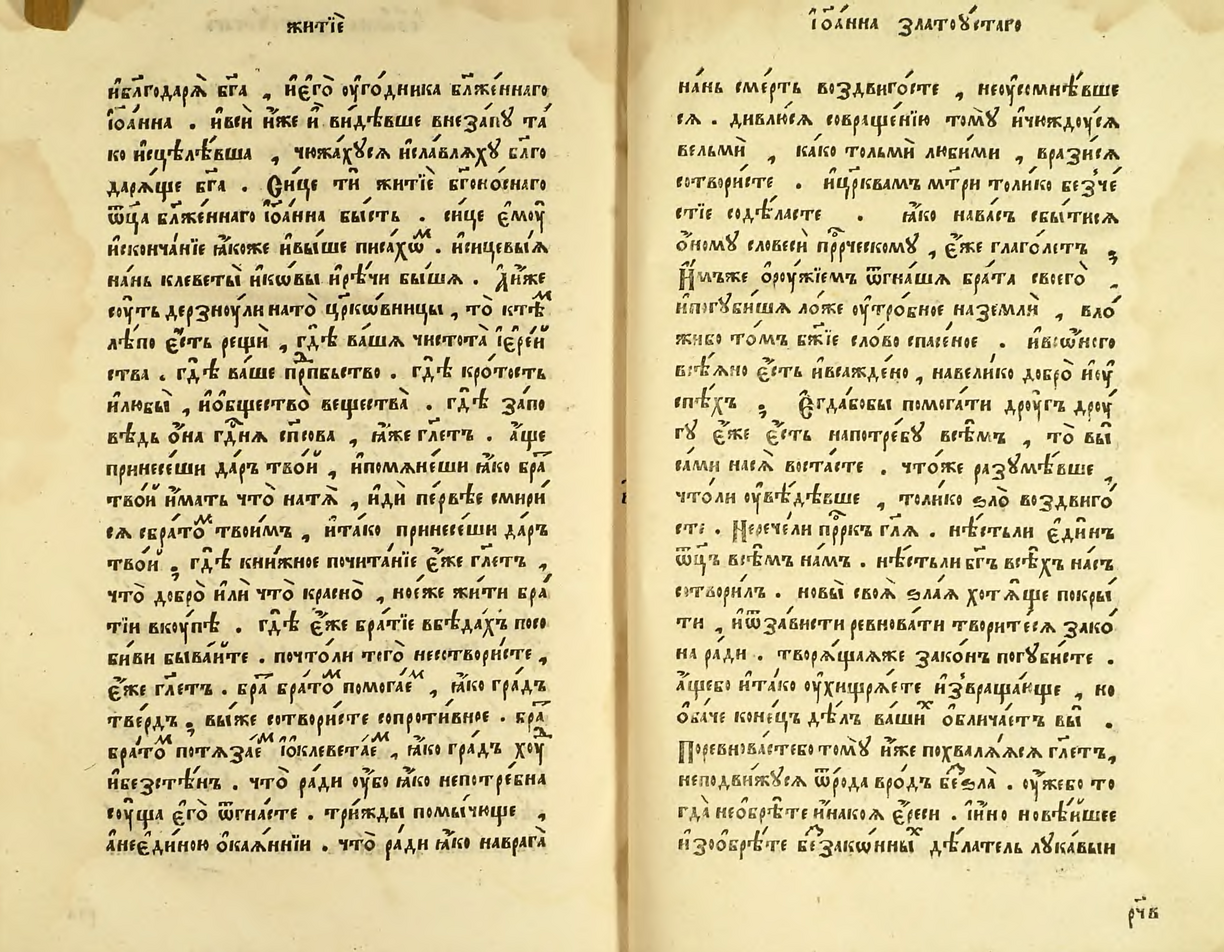 житїѐ
и҆бл҃годарѧ̀ бг҃а , и҆є҆го̀ ѹ҆го́дника бл҃же́ннаго
і҆ѡ҃а́нна . и҆вси̑ и҆́же и҆̀ ви́дѣвше внеза́пꙋ та́
ко и҆сцѣлѣ́вша , чюжа́хꙋсѧ и҆сла́влѧхꙋ бл҃го
дарѧ́ще бг҃а . Си́це ти̑ житїѐ бг҃оно́снаго
ѿц҃а бл҃же́ннаго і҆ѡ҃а́нна бы́сть . си́це є҆мꙋ̀
и҆сконча́нїе ꙗ҆́коже и҆вы́ше писа́хѡⷨ . и҆сицевы́ѧ
на́нь клеветы̀ и҆ко́вы и҆рѣ́чи бы́шѧ . А҆́иже
сѹ́ть дерзнѹ́ли нато̀ цр҃ко́вницы , то̀ к тѣⷨ
лѣ́по є҆́сть рещѝ , гдѣ̀ ва́шѧ чистота̀ і҆ере́й
ства . гдѣ̀ ва́ше прⷣпбьство . гдѣ̀ кро́тость
и҆любы̀ , и҆о́бщество̀ вещества̀ . гдѣ̀ за́по
вѣдь о҆́на гдⷭ҇нѧ сп҃сова , ꙗ҆́же гл҃етъ . а҆́ще
принесе́ши да́ръ тво́й , и҆помѧне́ши ꙗ҆́ко бра́
твой и҆́мать что̀ натѧ̀ , и҆дѝ пе́рвѣе смири́
сѧ сбра́тоⷨ твои́мъ , и҆та́ко принесе́ши да́ръ
тво́й ; гдѣ̀ кни́жное почита́нїе є҆́же гл҃етъ ,
что̀ добро̀ и҆́ли что̀ красно̀ , но є҆́же жи́ти бра́
тїи вкѹ́пѣ . гдѣ̀ є҆́же бра́тїе вбѣда́хъ посо
би́ви быва́йте . почто́ли того̀ несотвори́сте ,
є҆́же гл҃етъ . бра́ бра́тоⷨ помога́еⷨ , ꙗ҆́ко гра́дъ
тве́рдъ ; вы́же сотвори́сте сопроти́вное . бра́
бра́тоⷨ потѧза́еⷨ і҆ѡ҆клевета́еⷨ , ꙗ҆́ко гра́дъ хѹⷣ
и҆безстѣ́нъ . что̀ ра́ди ѹ҆́бо ꙗ҆́ко непотре́бна
сѹ́ща є҆го̀ ѿгна́сте . три́жды помы́чюще ,
а҆неє҆ди́ною ѻ҆каѧ́ннїи . что̀ ра́ди ꙗ҆́ко наврага̀
і҆ѡ҃а́нна златоꙋ́стаго
на́нь сме́рть воздвиго́сте , неѹ҆сомнѣ́вше
сѧ . дивлю́сѧ совраще́нїю томꙋ̀ и҆чюждѹ́сѧ
вельмѝ , ка́ко тольмѝ люби́ми , врази́сѧ
сотвори́сте . и҆цр҃квамъ мт҃ри толи́ко безче́
стїе содѣ́ласте . ꙗ҆́ко нава́съ сбы́тисѧ
о҆́номꙋ словесѝ прⷪ҇ро́ческомꙋ , є҆́же глаго́летъ ;
И҆́мъже ѻ҆рѹ́жїемъ ѿгна́шѧ бра́та своего̀
и҆погꙋби́шѧ ло́же ѹ҆тро́бное наземлѝ , вло
жи́бо то́мъ бж҃їе сло́во спасе́ное . и҆вѡ҆́нсго
всѣ́ѧно є҆́сть и҆всажде́но , навели́ко добро̀ и҆ѹ
спѣ́хъ ; Є҆гда́бобы помога́ти дрѹ́гъ дрѹ́
гꙋ є҆́же є҆́сть напотре́бꙋ всѣ́мъ , то̀ вы̀
са́ми насѧ̀ воста́сте . что́же разꙋмѣ́вше ,
что́ли ѹ҆вѣ́дѣвше , толи́ко ѕло̀ воздвиго́
сте . Нерече́ли прⷪ҇ркъ гл҃ѧ . нѣ́стьли є҆ди́нъ
ѿц҃ъ всѣ́мъ на́мъ . нѣ́стьли бг҃ъ всѣ́хъ на́съ
сотвори́лъ . новы̀ своѧ̀ ѕла́ѧ хотѧ́ще покры́
ти , и҆ѿза́висти ревнова́ти творите́сѧ зако́
на ра́ди . творѧ́щаѧже зако́нъ погꙋби́сте .
а҆́щебо и҆та́ко ѹ҆хищрѧ́ете и҆звраща́юще , но
ѻ҆ба́че коне́цъ дѣ́лъ ва́шиⷯ ѡ҆блича́етъ вы̀ .
Поревнова́стебо томꙋ̀ и҆́же похвалѧ́ѧсѧ гл҃етъ,
неподви́жꙋсѧ ѿро́да вро́дъ беⷥѕла̀ . ѹ҆жебо то
гда̀ необрѣ́те и҆́накоѧ є҆́реси . і҆и҆но нове́йшее
и҆зѻ҆брѣ́те беⷥзако́нныⷯ дѣ́латель лꙋка́вый
рч҃в